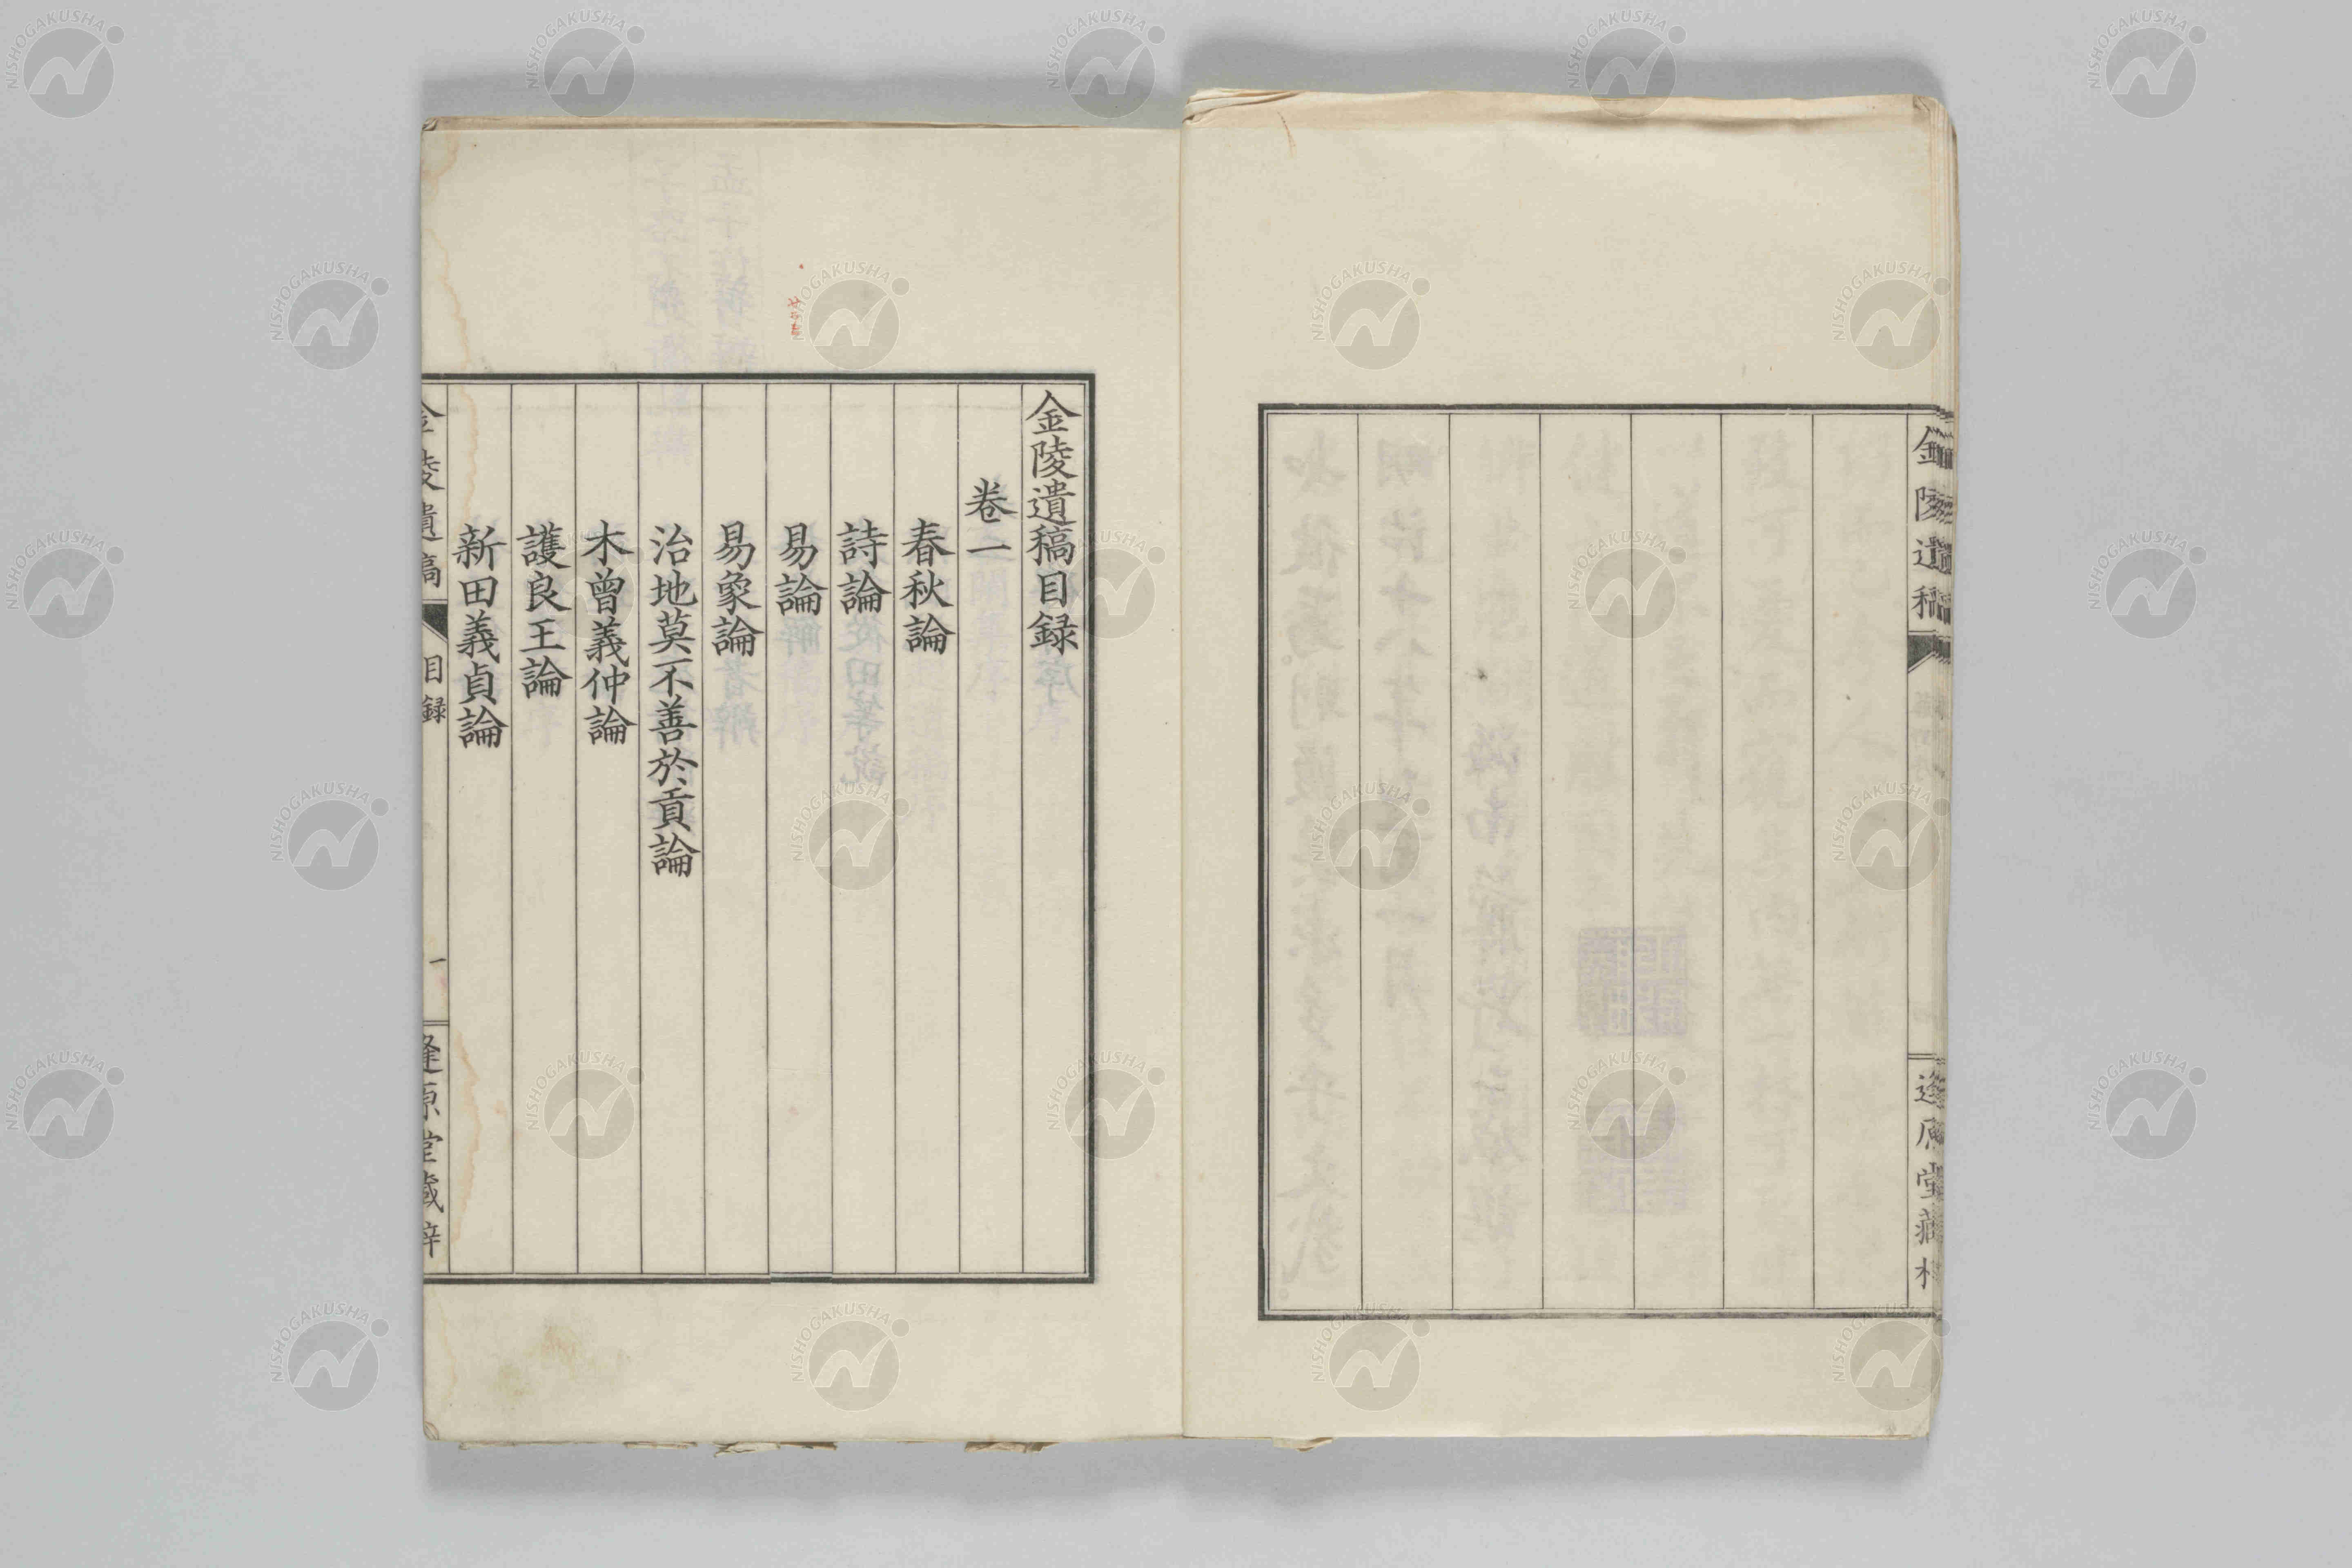 金陵遺稿
金陵遺稿目録
卷一
春秋論
詩論
易論
易象論
治地莫不善於貢論
木曾義仲論
護良王論
新田義貞論
金陵遺稿
目録
一
逢原堂藏梓
NISHOGAKUSHA